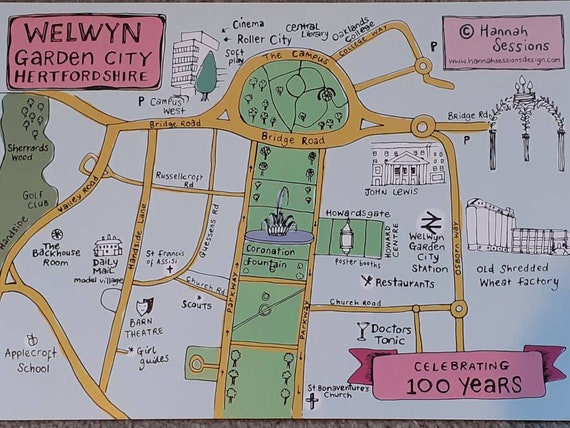 WELWYN
GARDEN CITY
HERTFORDSHIRE
Cinema
Roller City
Soft
play
Central
Library
Oaklands
College
COLLEGE WAY
P
© Hannah
Sessions
www.hannahsessionsdesign.com
The Campus
P
Campus
West
Bridge Road
Bridge Road
Bridge Rd
Sherrards
Wood
GOLF
CLUB
Handside
Valley Road
Russellcroft
Rd
Handside Lane
Guessens Rd
JOHN LEWIS
The
Backhouse
Room
DAILY
MAIL
model village
St Francis
of Assisi
Coronation
Fountain
Howardsgate
poster booths
HOWARD
CENTRE
Welwyn
Garden
City
Station
Osborn Way
Old Shredded
Wheat Factory
Church Rd
Scouts
Parkway
Parkway
Restaurants
Church Road
BARN
THEATRE
Girl
guides
Applecroft
School
Doctors
Tonic
St. Bonaventure's
Church
CELEBRATING
100 YEARS